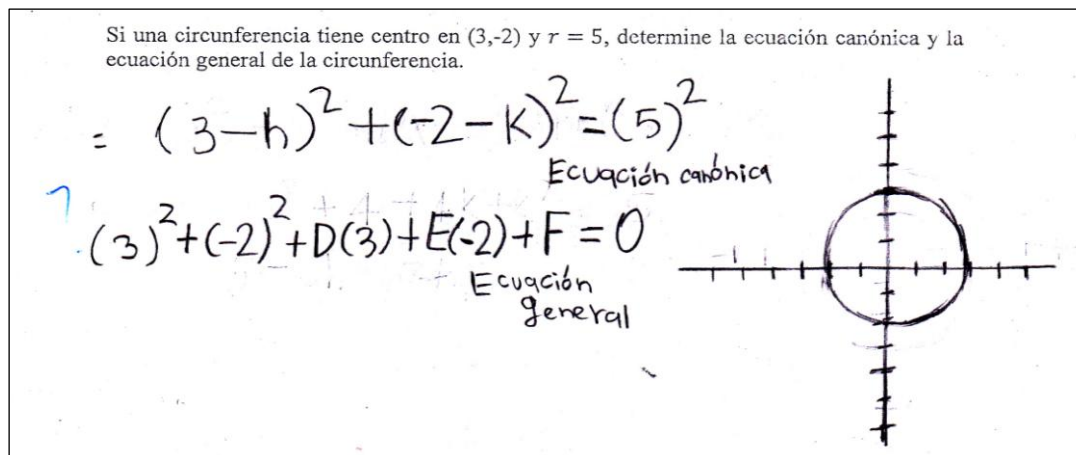 Si una circunferencia tiene centro en (3,-2) y r = 5, determine la ecuación canónica y la
ecuación general de la circunferencia.
= (3-h)² + (-2-K)² = (5)²
Ecuación canónica
? (3)² + (-2)² + D(3) + E(-2) + F = 0
Ecuación
general